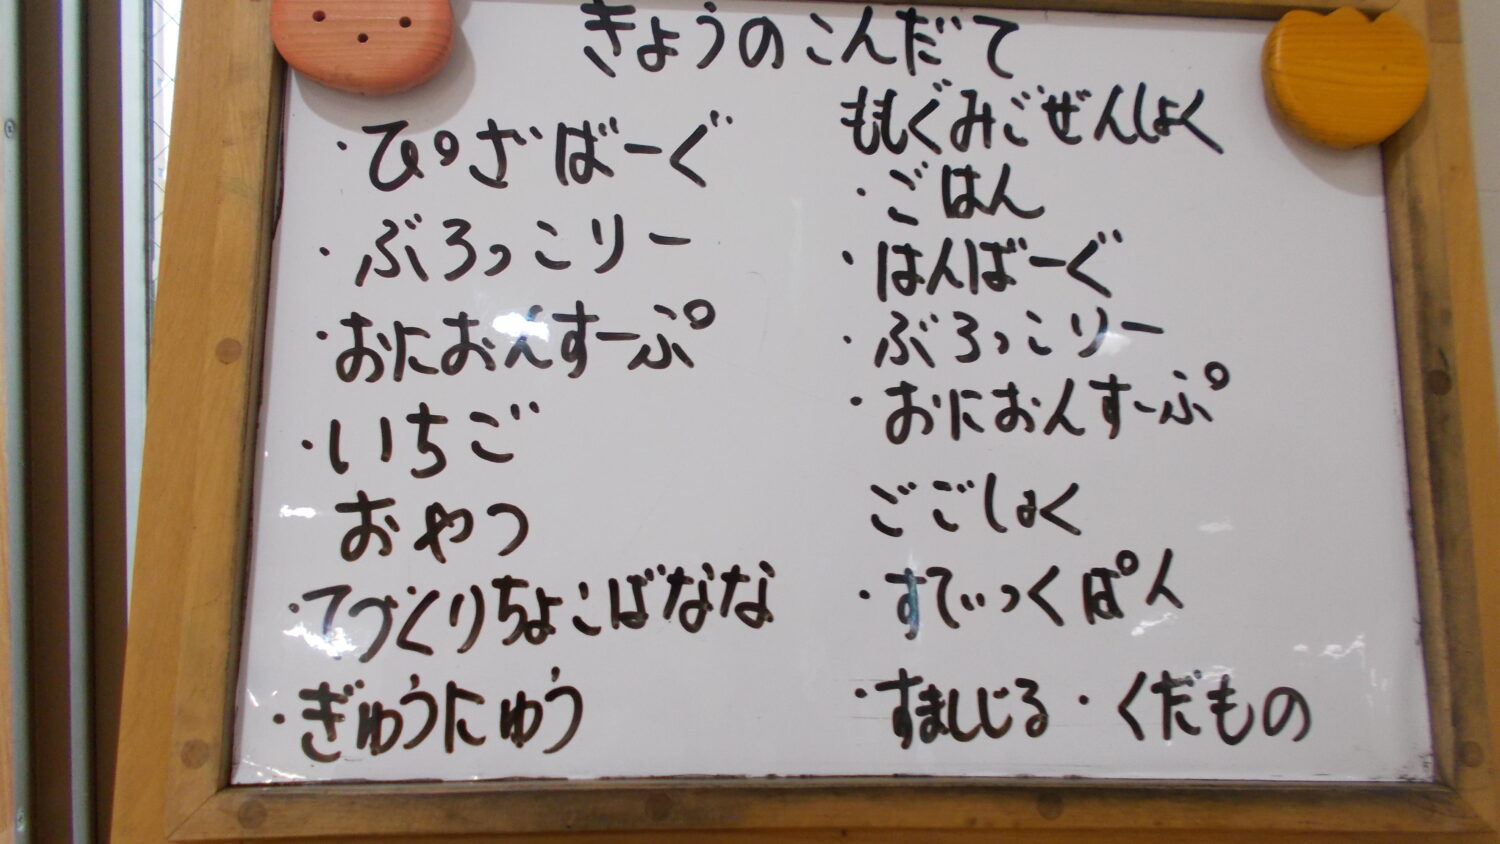 きょうのこんだて
・ぴざばーぐ
・ぶろっこりー
・おにおんすーぷ
・いちご
おやつ
・てづくりちょこばなな
・ぎゅうにゅう
ももぐみごぜんしょく
・ごはん
・はんばーぐ
・ぶろっこりー
・おにおんすーぷ
ごごしょく
・すてぃっくぱん
・すましじる・くだもの